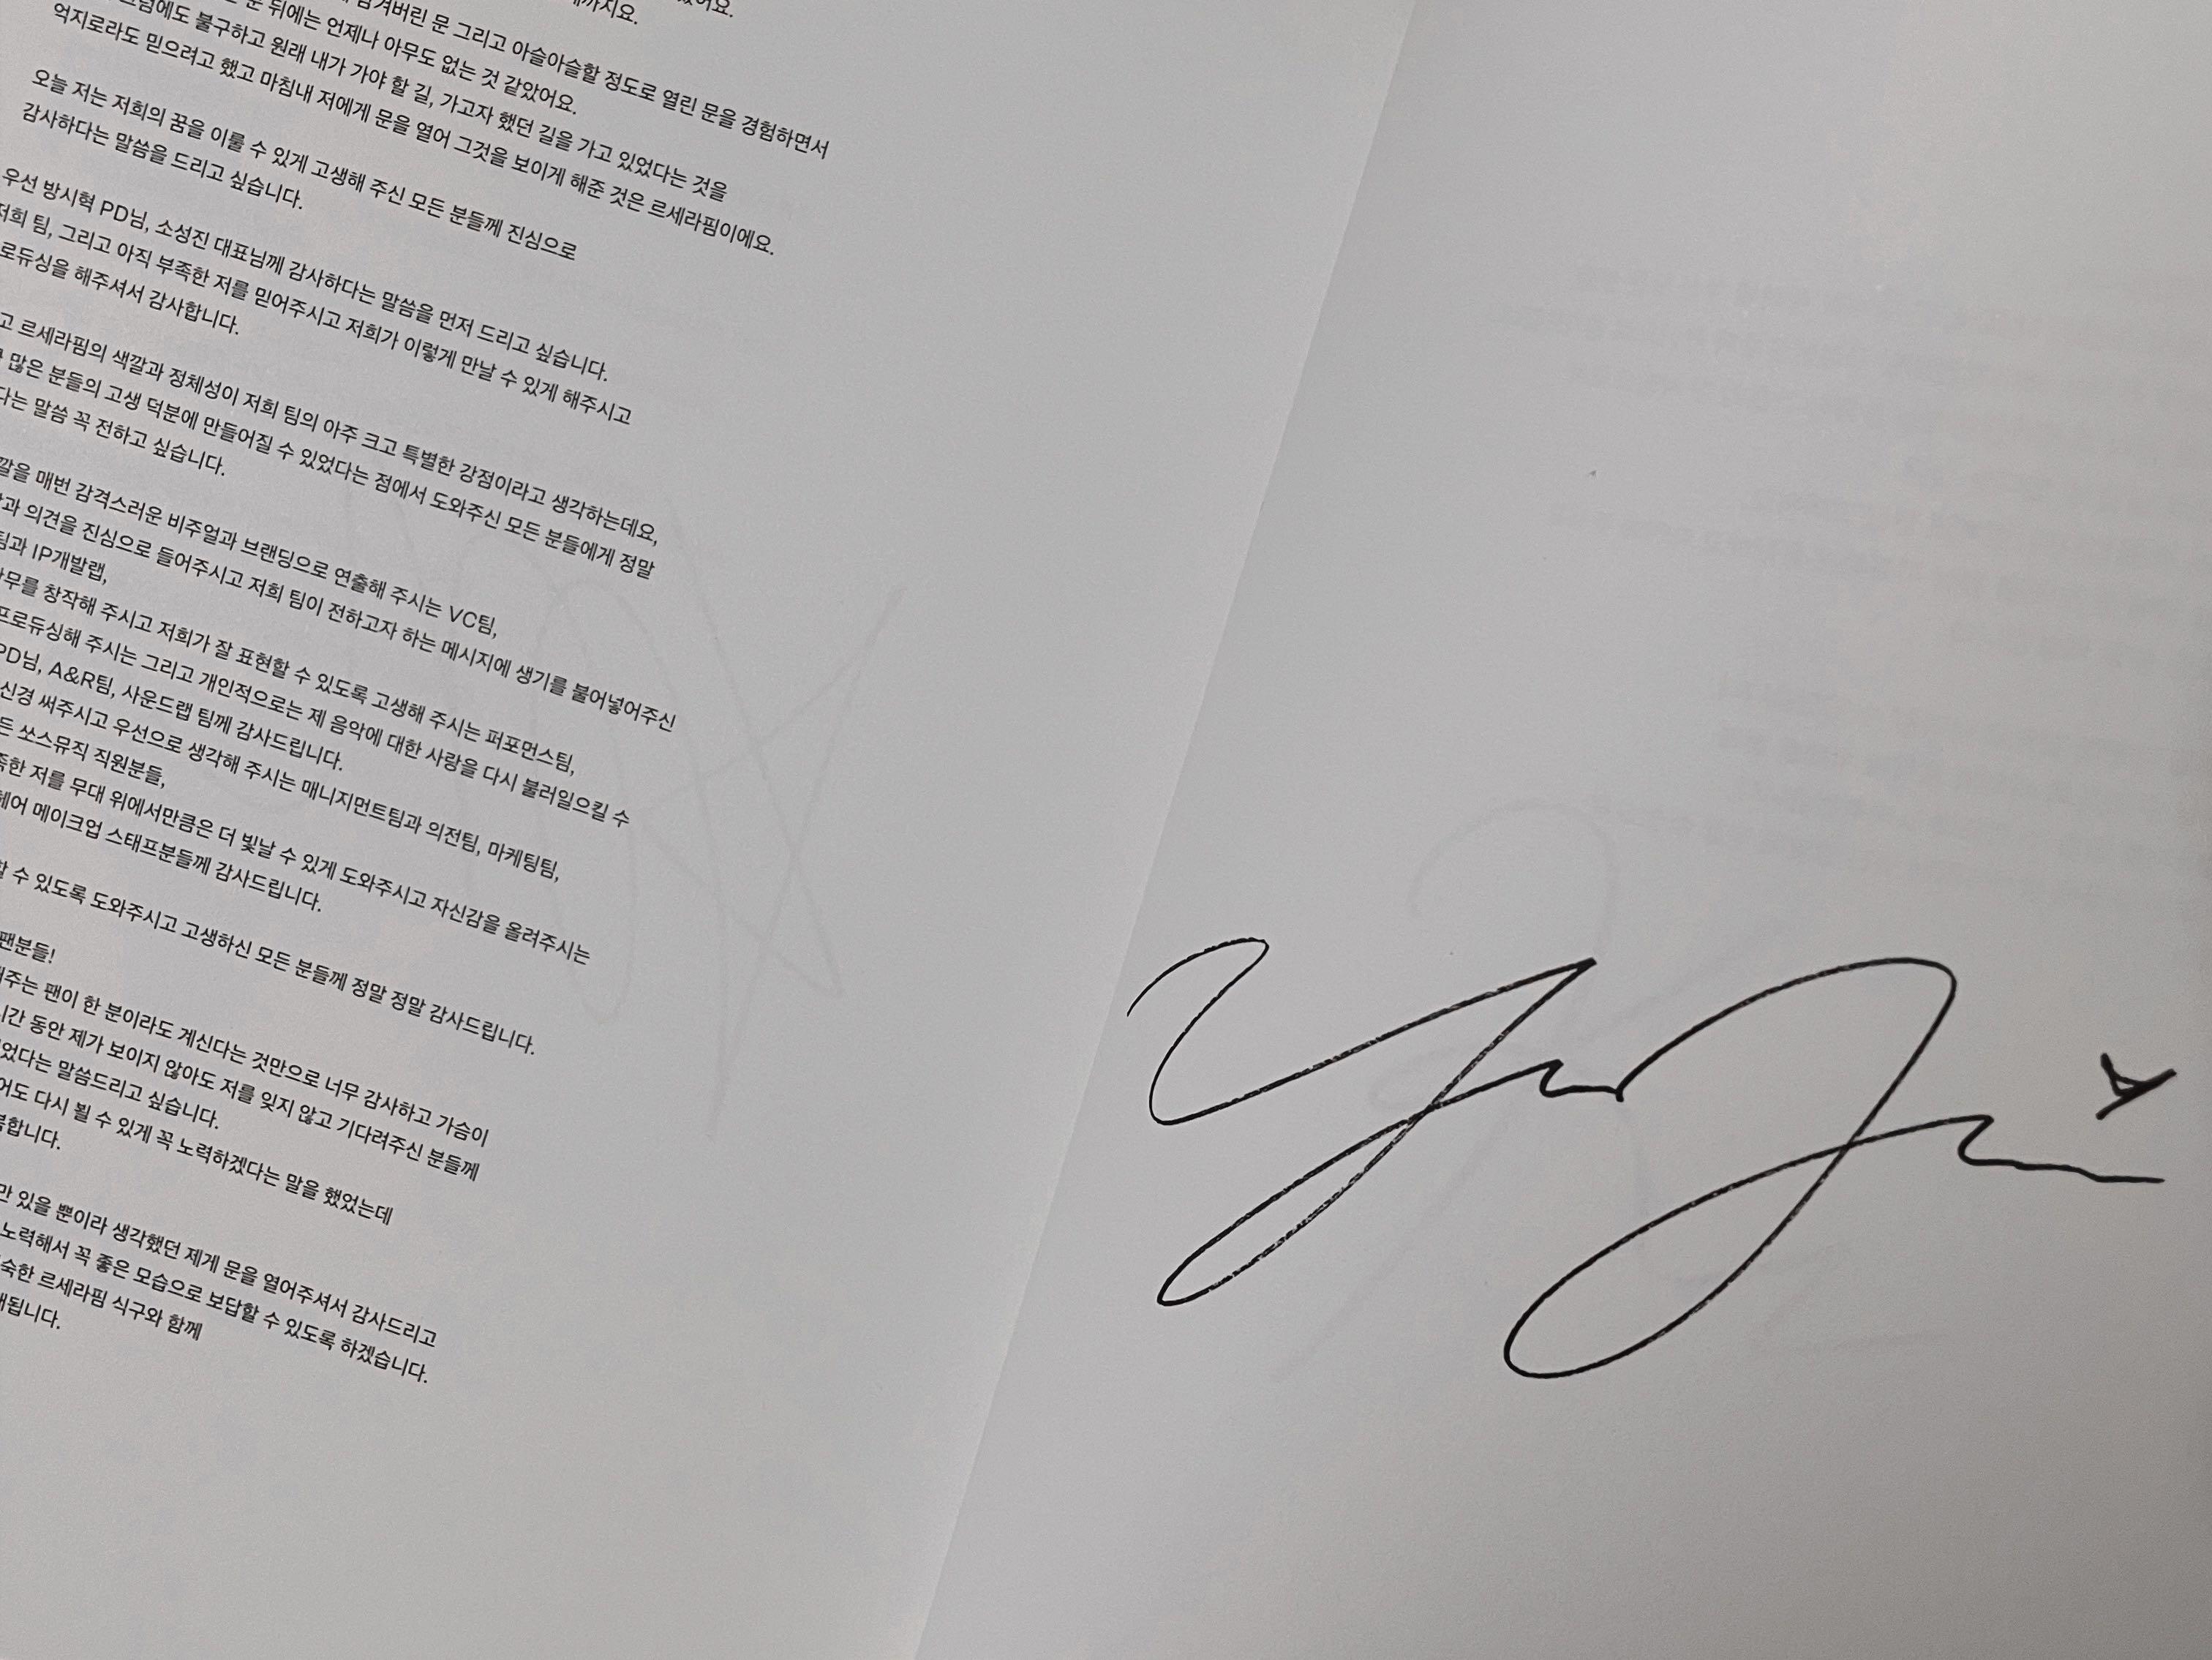 겨버린 문 그리고 아슬아슬할 정도로 열린 문을 경험하면서
뒤에는 언제나 아무도 없는 것 같았어요.
불구하고 원래 내가 가야 할 길, 가고자 했던 길을 가고 있었다는 것을
억지로라도 믿으려고 했고 마침내 저에게 문을 열어 그것을 보이게 해준 것은 르세라핌이에요.
오늘 저는 저희의 꿈을 이룰 수 있게 고생해 주신 모든 분들께 진심으로
감사하다는 말씀을 드리고 싶습니다.
우선 방시혁 PD님, 소성진 대표님께 감사하다는 말씀을 먼저 드리고 싶습니다.
저희 팀, 그리고 아직 부족한 저를 믿어주시고 저희가 이렇게 만날 수 있게 해주시고
로듀싱을 해주셔서 감사합니다.
고 르세라핌의 색깔과 정체성이 저희 팀의 아주 크고 특별한 강점이라고 생각하는데요,
많은 분들의 고생 덕분에 만들어질 수 있었다는 점에서 도와주신 모든 분들에게 정말
다는 말씀 꼭 전하고 싶습니다.
깔을 매번 감격스러운 비주얼과 브랜딩으로 연출해 주시는 VC팀,
과 의견을 진심으로 들어주시고 저희 팀이 전하고자 하는 메시지에 생기를 불어넣어주신
팀과 IP개발랩,
무를 창작해 주시고 저희가 잘 표현할 수 있도록 고생해 주시는 퍼포먼스팀,
프로듀싱해 주시는 그리고 개인적으로는 제 음악에 대한 사랑을 다시 불러일으킬 수
PD님, A&R팀, 사운드랩 팀께 감사드립니다.
신경 써주시고 우선으로 생각해 주시는 매니지먼트팀과 의전팀, 마케팅팀,
든 쏘스뮤직 직원분들,
족한 저를 무대 위에서만큼은 더 빛날 수 있게 도와주시고 자신감을 올려주시는
헤어 메이크업 스태프분들께 감사드립니다.
할 수 있도록 도와주시고 고생하신 모든 분들께 정말 정말 감사드립니다.
팬분들!
해주는 팬이 한 분이라도 계신다는 것만으로 너무 감사하고 가슴이
시간 동안 제가 보이지 않아도 저를 잊지 않고 기다려주신 분들께
었다는 말씀드리고 싶습니다.
어도 다시 뵐 수 있게 꼭 노력하겠다는 말을 했었는데
합니다.
만 있을 뿐이라 생각했던 제게 문을 열어주셔서 감사드리고
노력해서 꼭 좋은 모습으로 보답할 수 있도록 하겠습니다.
숙한 르세라핌 식구와 함께
됩니다.